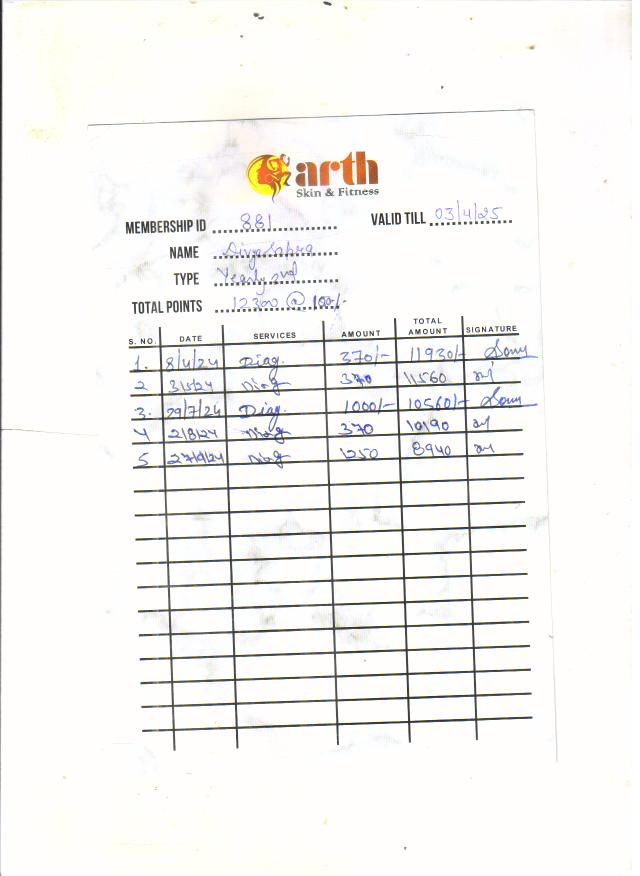 arth
Skin & Fitness
MEMBERSHIP ID 881 VALID TILL 03/4/25
NAME
TYPE Yearly 2nd
TOTAL POINTS 12300 @ 100/-
S. NO. DATE SERVICES AMOUNT TOTAL AMOUNT SIGNATURE
1. 8/4/24 Diag. 370/- 11930/- Sony
2 3/5/24 Diag 370 11560
3. 29/7/24 Diag. 1000/- 10560/- Sony
4 2/8/24 Diag 370 10190
5 27/9/24 Diag 1250 8940